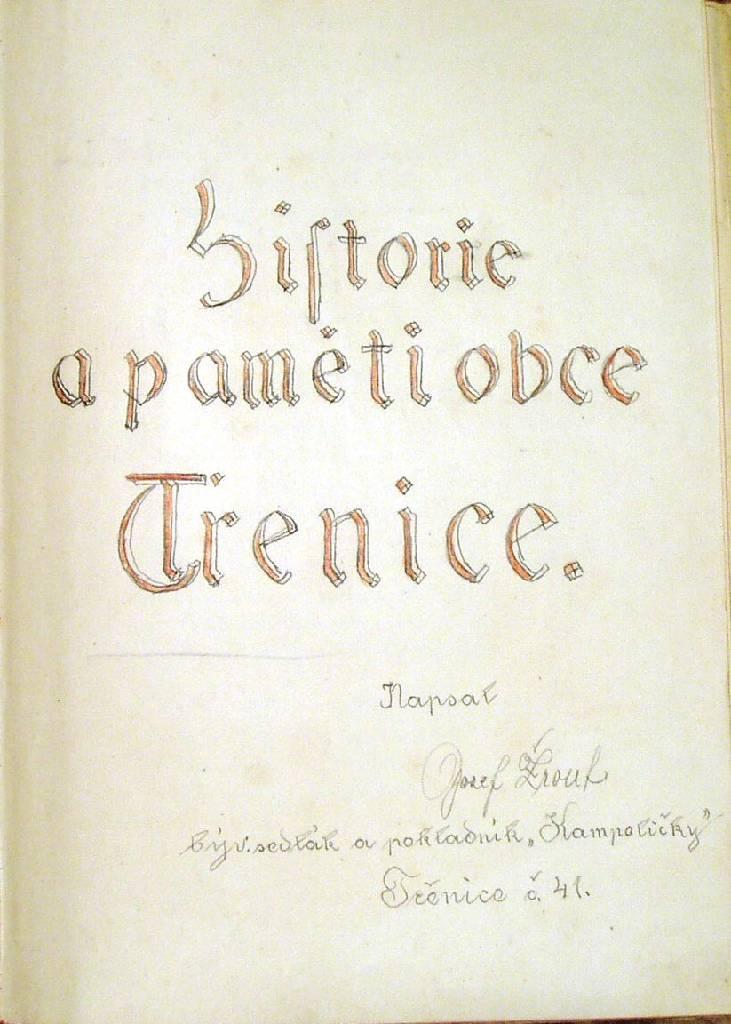 Historie
a paměti obce
Třenice.
Napsal
Josef Žrout
býv. sedlák a pokladník „Kampeličky”
Třenice č. 41.